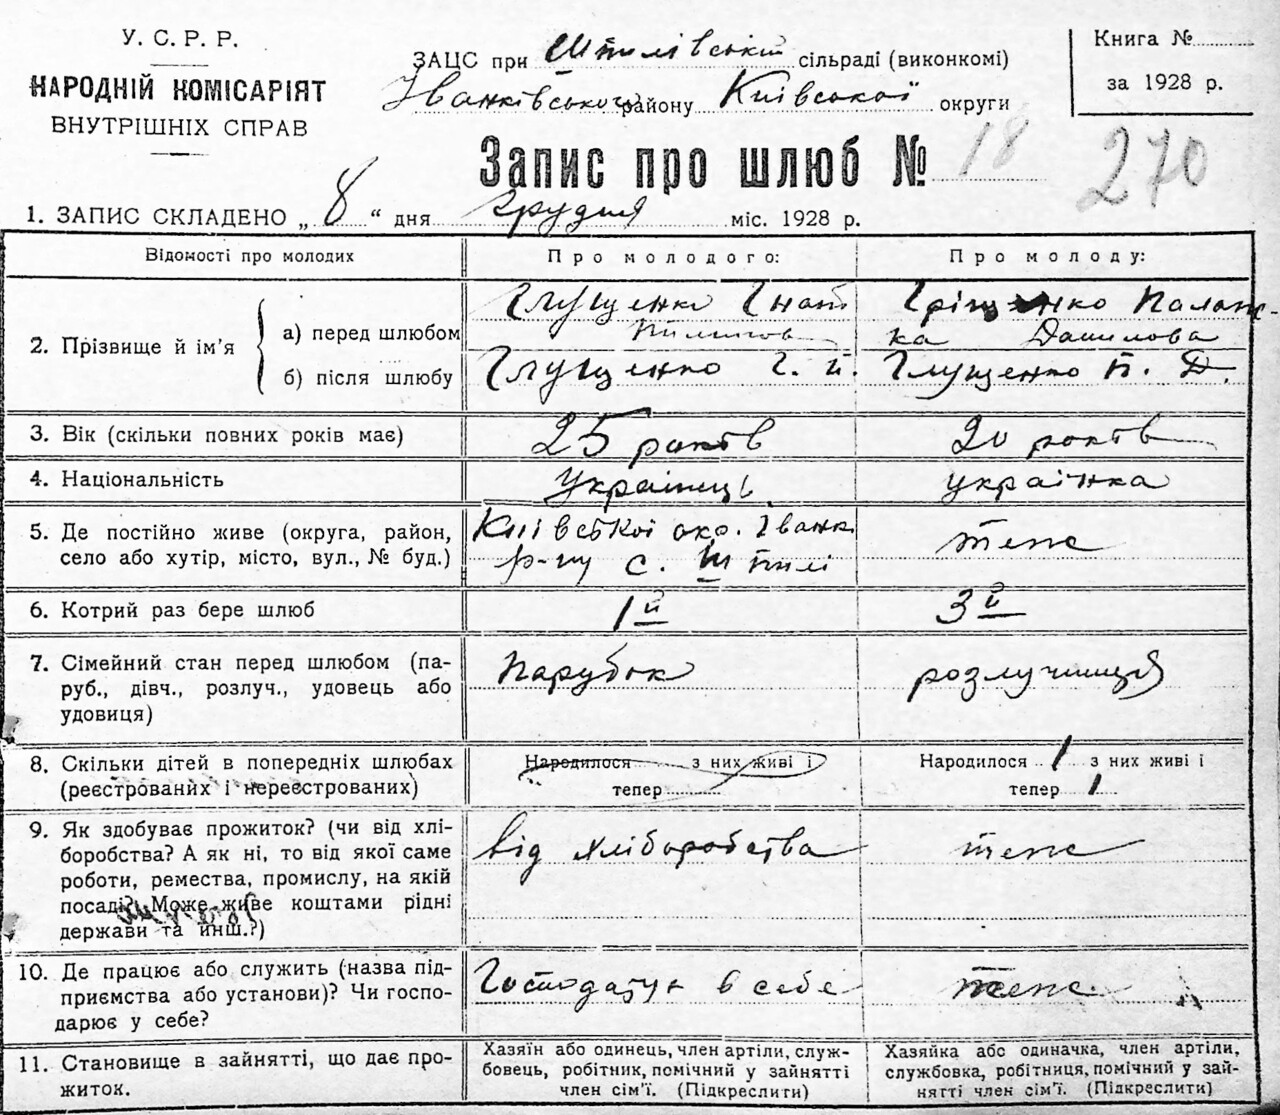 У. С. Р. Р.
НАРОДНІЙ КОМІСАРІЯТ
ВНУТРІШНІХ СПРАВ
ЗАЦС при Шпилівській сільраді (виконкомі)
Іванківського району Київської округи
Книга №
за 1928 р.
Запис про шлюб № 18
270
1. ЗАПИС СКЛАДЕНО „ 8 “ дня грудня міс. 1928 р.
Відомості про молодих
Про молодого:
Про молоду:
2. Прізвище й ім’я
а) перед шлюбом
Глущенко Гнат
Пилипов
Гріщенко Палаж-
ка Данилова
б) після шлюбу
Глущенко Г. П.
Глущенко П. Д.
3. Вік (скільки повних років має)
25 років
20 років
4. Національність
Українець
українка
5. Де постійно живе (округа, район,
село або хутір, місто, вул., № буд.)
Київської окр. Іванк
р-ну с. Шпилі
теж
6. Котрий раз бере шлюб
1й
3й
7. Сімейний стан перед шлюбом (па-
руб., дівч., розлуч., удовець або
удовиця)
Парубок
розлучниця
8. Скільки дітей в попередніх шлюбах
(реєстрованих і нереєстрованих)
Народилося з них живі і
тепер
Народилося 1 з них живі і
тепер 1
9. Як здобуває прожиток? (чи від хлі-
боробства? А як ні, то від якої саме
роботи, ремества, промислу, на якій
посаді? Може живе коштами рідні
держави та инш.?)
від хліборобства
теж
10. Де працює або служить (назва під-
приємства або установи)? Чи госпо-
дарює у себе?
Господарує в себе
теж
11. Становище в зайнятті, що дає про-
житок.
Хазяїн або одинець, член артіли, служ-
бовець, робітник, помічний у зайнятті
член сім’ї. (Підкреслити)
Хазяйка або одиначка, член артіли,
службовка, робітниця, помічний у зай-
нятті член сім’ї. (Підкреслити)